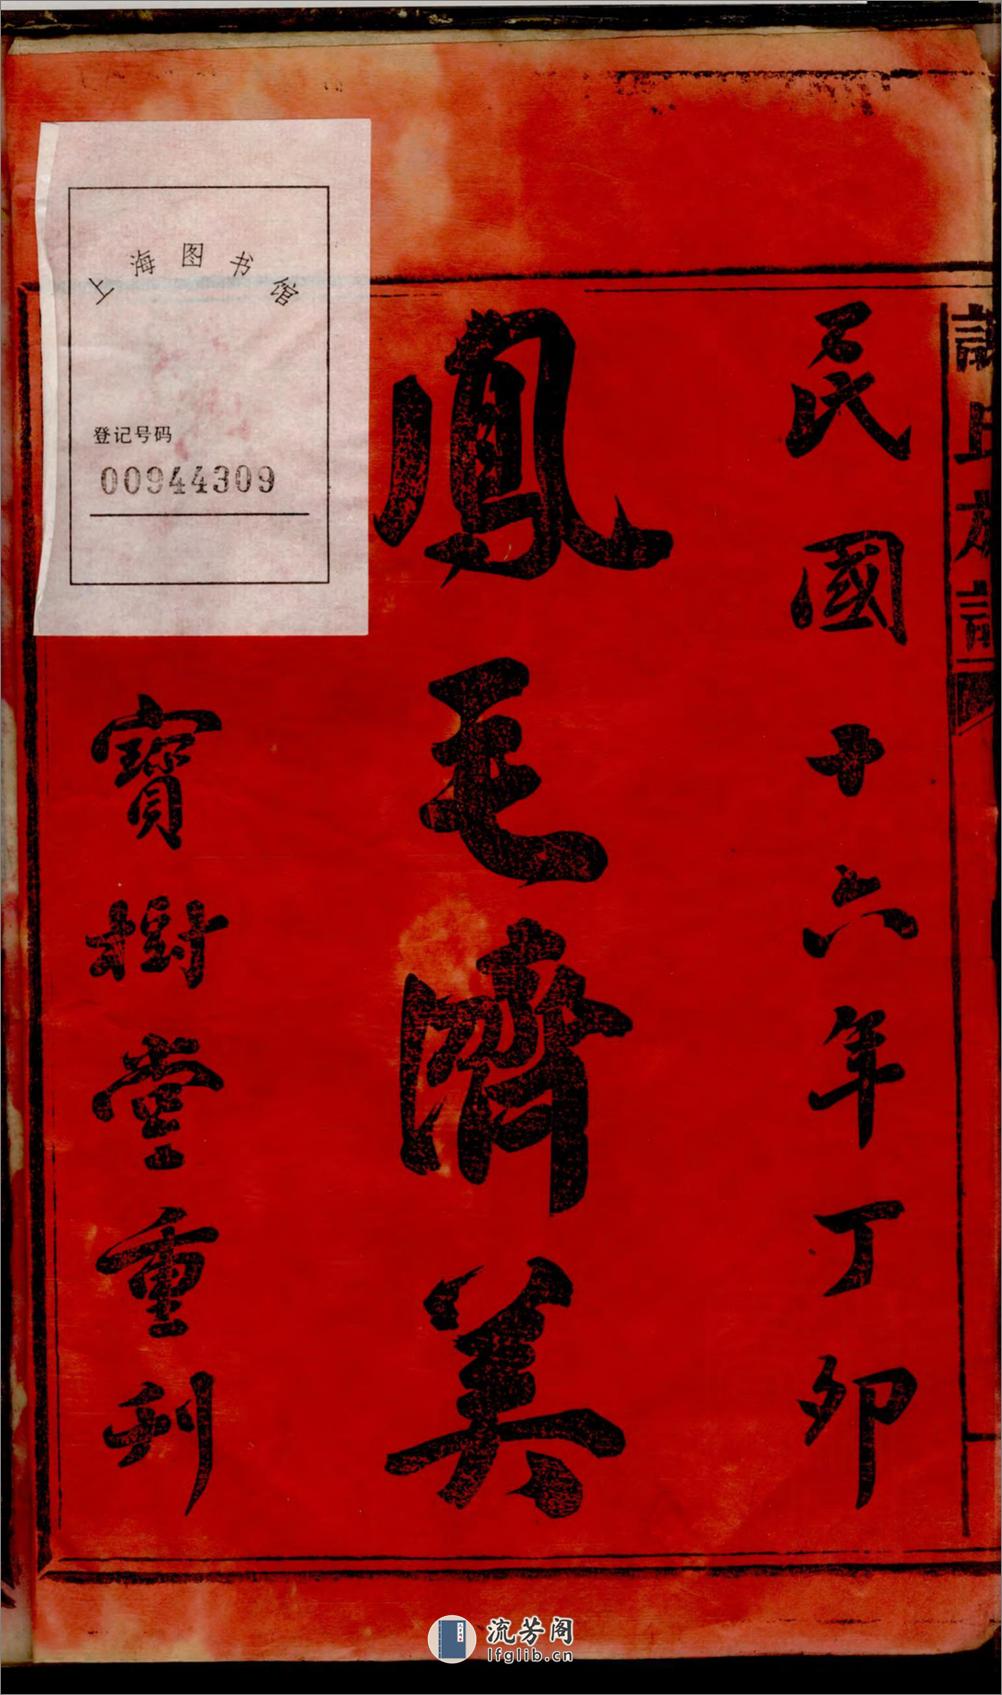 民國十六年丁卯
鳳毛濟美
寶樹堂重刋
上海图书馆
登记号码
00944309
氏族譜
流芳阁
lfglib.cn